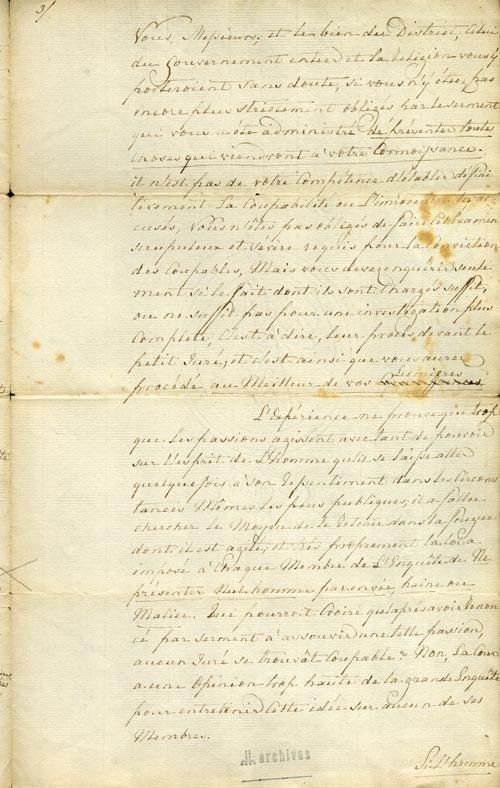 3/
Vous, Messieurs, et le bien du District, celui
du Gouvernement entier et la Religion vous y
porteroient sans doute, si vous n'y étiez pas
encore plus strictement obligés par le serment
qui vous a été administré de présenter toute
choses qui viendront à votre Connoissance.
il n'est pas de votre Compétence d'établir défini
tivement La Coupabilité ou L'innocence des ac
cusés, Vous n'êtes pas obligés de faire cet Examen
scrupuleux et sévère requis pour la Conviction
des Coupables, Mais vous devez enquérir seule
ment si le fait dont ils sont Chargés suffit,
ou ne suffit pas pour une investigation plus
Complete, C'est à dire, leur procès devant le
petit Juré; et c'est ainsi que vous aurez
Lumières
procédé au Meilleur de vos
L'Expérience ne prouve que trop
que les passions agissent avec tant de pouvoir
sur L'esprit de L'homme qu'il se laisse aller
quelque fois à son ressentiment dans les Circons
tances Mêmes les plus publiques; il a fallu
chercher le Moyen de le retenir dans la fougue
dont il est agité, et très proprement la loi a
imposé à Chaque Membre de L'Enquête de Ne
présenter Nul homme par envie, haine ou
Malice. Qui pourroit Croire qu'après avoir renon
cé par serment à assouvir une telle passion,
aucun Juré se trouvât Coupable? Non, La Cour
a une Opinion trop haute de la grande Enquête
pour entretenir Cette idée sur aucun de ses
Membres.
archives
Si L'homme